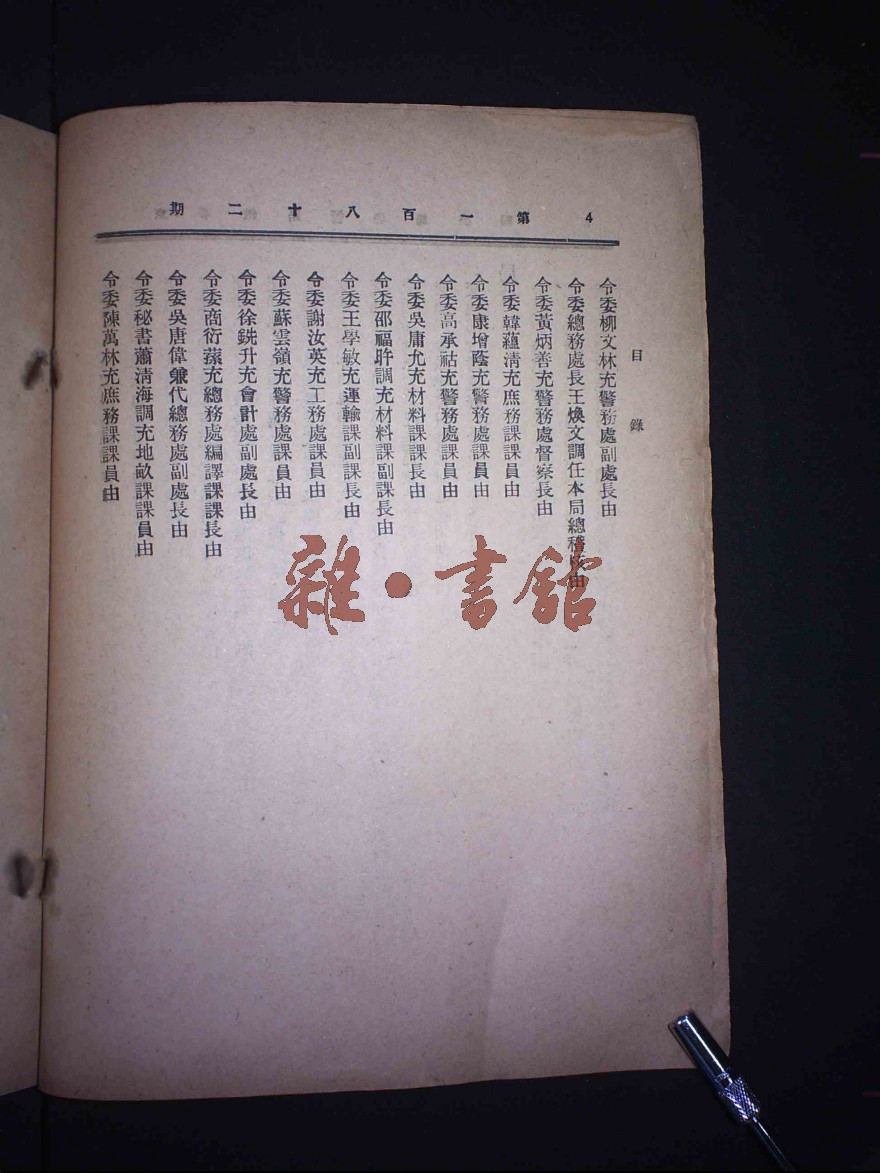 4 第一百八十二期
目錄
令委柳文林充警務處副處長由
令委總務處長王煥文調任本局總稽核由
令委黃炳善充警務處督察長由
令委韓蘊清充庶務課課員由
令委康增蔭充警務處課員由
令委高承祜充警務處課員由
令委吳庸允充材料課課長由
令委邵福旿調充材料課副課長由
令委王學敏充運輸課副課長由
令委謝汝英充工務處課員由
令委蘇雲嶺充警務處課員由
令委徐銑升充會計處副處長由
令委商衍充總務處編譯課課長由
令委吳唐偉兼代總務處副處長由
令委秘書蕭清海調充地畝課課員由
令委陳萬林充庶務課課員由
雜·書館